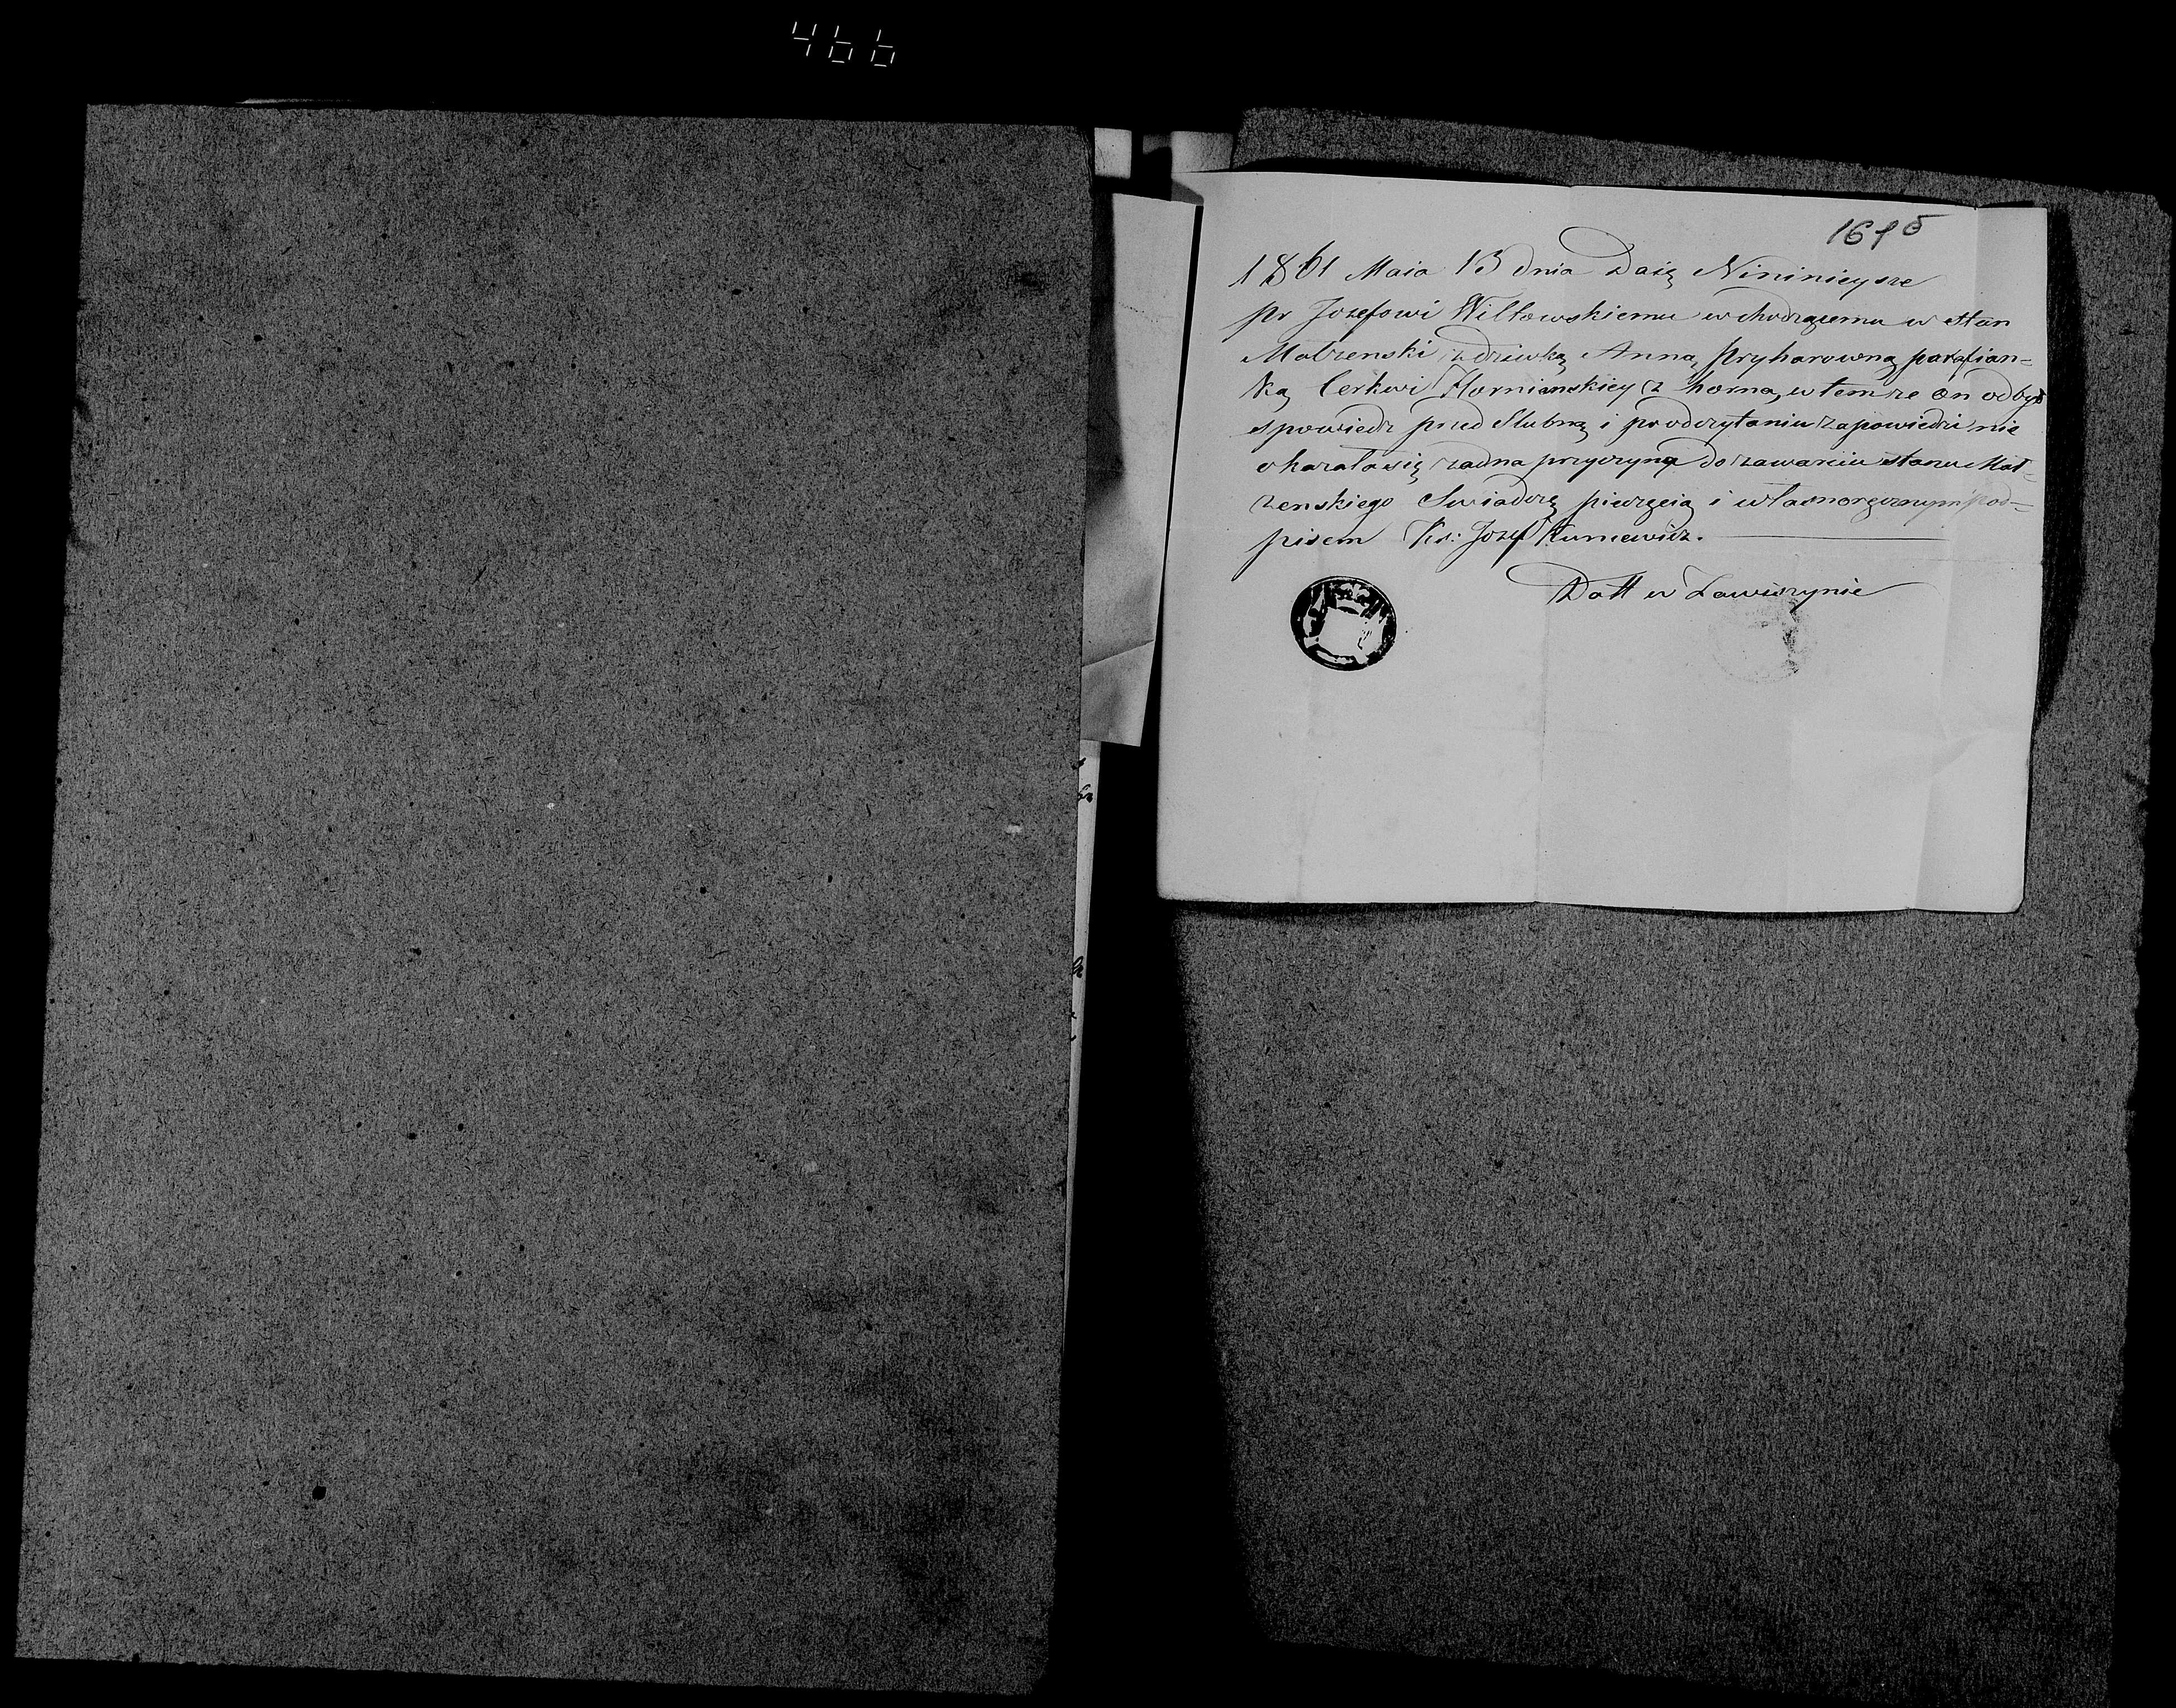 466
1615
1861 Maia 13 dnia Daię Nininieysze
pr Jozefowi Wiltowskiemu wchodzącemu w stan
Małzenski z dziewką Anną Pryharowną parafian=
ką Cerkwi Hornianskiey z horna, w tem ze on odbył
spowiedz przed Slubną i po odczytaniu zapowiedzi nie
okazała się zadna przyczyna do zawarciu stanu Mał=
zenskiego Swiadczę pieczęcią i własnoręcznym pod=
pisem Ks: Jozef
Datt w Zawiszynie